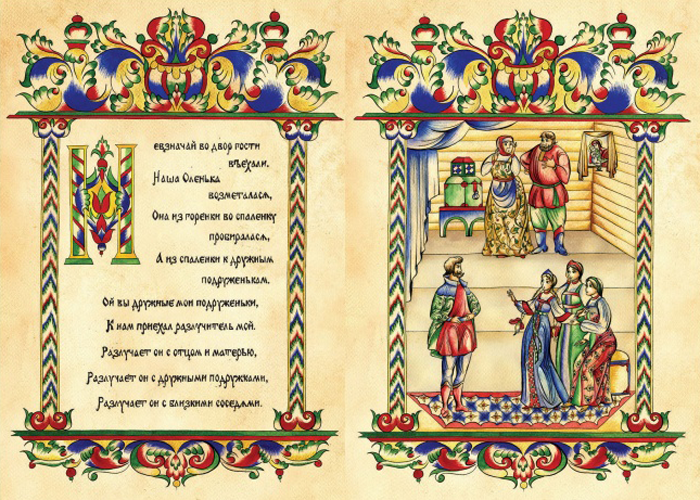 Невзначай во двор гости
въехали.
Наша Оленька
возметалася,
Она из горенки во спаленку
пробиралася,
А из спаленки к дружным
подруженькам.
Ой вы дружные мои подруженьки,
К нам приехал разлучитель мой.
Разлучает он с отцом и матерью,
Разлучает он с дружными подружками,
Разлучает он с близкими соседями.